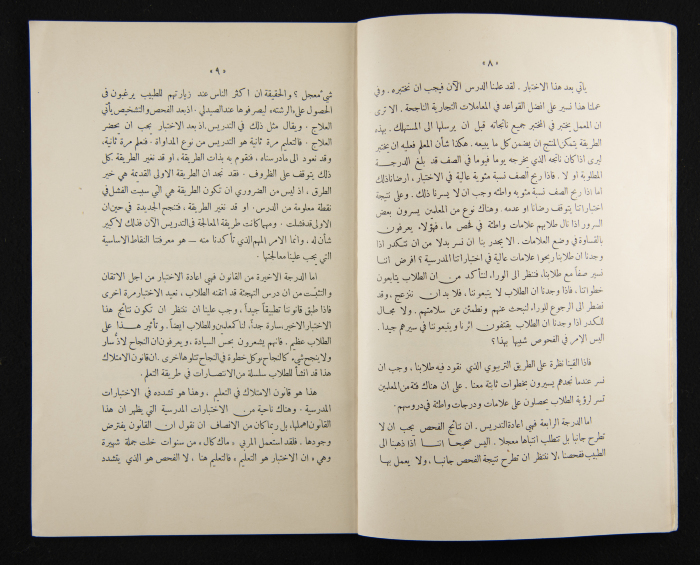 «٨»
يأتي بعد هذا الاختبار . لقد علمنا الدرس الآن فيجب ان نختبره . وفي
عملنا هذا نسير على افضل القواعد في المعاملات التجارية الناجحة . الا ترى
ان المعمل يختبر في المختبر جميع ناتجاته قبل ان يرسلها الى المستهلك . بهذه
الطريقة يتمكن المنتج ان يضمن كل ما يبيعه . هكذا شأن المعلم فعليه ان يختبر
ليرى اذا كان ناتجه الذي يخرجه يوما فيوما في الصف قد بلغ الدرجة
المطلوبة او لا . فاذا ربح الصف نسبة مئوية عالية في الاختبار ، ارضانا ذلك
اما اذا ربح الصف نسبة مئويه واطئه وجب ان لا يسرنا ذلك . وعلى نتيجة
اختباراتنا يتوقف رضانا او عدمه . وهناك نوع من المعلمين يسرون بعض
السرور اذا نال طلابهم علامات واطئة في فحص ما ، فهؤلاء يعرفون
بالقساوة في وضع العلامات . الا يجدر بنا ان نسر بدلا من ان نتكدر اذا
وجدنا ان طلابنا ربحوا علامات عالية في اختباراتنا المدرسية ؟ افرض اننا
نسير صفاً مع طلابنا ، فننظر الى الوراء ، لنتأكد من ان الطلاب يتابعون
خطواتنا ، فاذا وجدنا ان الطلاب لا يتبعوننا ، فلا بد ان ننزعج ، وقد
نضطر الى الرجوع للوراء لنبحث عنهم ونطمئن عن سلامتهم . ولا مجال
للكدر اذا وجدنا ان الطلاب يقتفون اثرنا ويتبعوننا في سيرهم جيدا .
اليس الامر في الفحوص شبيها بهذا ؟
فاذا القينا نظرة على الطريق التربوي الذي نقود فيه طلابنا ، وجب ان
نسر عندما نجدهم يسيرون بخطوات ثابتة معنا . على ان هناك فئة من المعلمين
تسر لرؤية الطلاب يحصلون على علامات ودرجات واطئة في دروسهم .
اما الدرجة الرابعة فهي اعادة التدريس . ان نتائج الفحص يجب ان لا
تطرح جانبا بل تتطلب انتباها معجلا . اليس صحيحا اننا اذا ذهبنا الى
الطبيب ففحصنا ، لا ننتظر ان تطرح نتيجة الفحص جانبا ، ولا يعمل بها
«٩»
شيء معجل ؟ والحقيقة ان اكثر الناس عند زيارتهم للطبيب يرغبون في
الحصول على الرشته ، ليصرفوها عند الصيدلي . اذ بعد الفحص والتشخيص يأتي
العلاج . ويقال مثل ذلك في التدريس . اذ بعد الاختبار يجب ان يحضر
العلاج . فالتعليم مرة ثانية هو التدريس من نوع المداواة . فنعلم مرة ثانية ،
وقد نعود الى ما درسناه ، فنقوم به بذات الطريقة ، او قد نغير الطريقة كل
ذلك يتوقف على الظروف . فقد نجد ان الطريقة الاولى القديمة هي خير
الطرق ، اذ ليس من الضروري ان تكون الطريقة هي التي سببت الفشل في
نقطة معلومة من الدرس . او قد نغير الطريقة ، فتنجم الجديدة في حين ان
الاولى قد فشلت . ومهما كانت طريقة المعالجة في التدريس الآن فذلك لا كبير
شأن له ، وانما الامر المهم الذي تأكدنا منه — هو معرفتنا النقاط الاساسية
التي يجب علينا معالجتها .
اما الدرجة الاخيرة من القانون فهي اعادة الاختبار من اجل الاتقان
والتثبت من ان درس التهجئة قد اتقنه الطلاب ، نعيد الاختبار مرة اخرى
فاذا طبق قانوننا تطبيقاً جيداً ، وجب علينا ان ننتظر ان تكون نتائج هذا
الاختبار الاخير سارة جداً ، لنا كمعلمين وللطلاب ايضاً . وتأثير هذا على
الطلاب عظيم . فانهم يشعرون بحس السيادة ، ويعرفون ان النجاح لاذ سار
ولا ينجح شيء كالنجاح ، وكل خطوة في النجاح تتلوها اخرى . ان قانون الامتلاك
هذا قد انشأ للطلاب سلسلة من الانتصارات في طريقة التعلم .
هذا هو قانون الامتلاك في التعليم ، وهذا هو تشدده في الاختبارات
المدرسية . وهناك ناحية من الاختبارات المدرسية التي يظهر ان هذا
القانون اهملها ، بل ربما كان من الانصاف ان نقول ان القانون يفترض
وجودها . فلقد استعمل المربي « ماك كال » من سنوات خلت جملة شهيرة
وهي « ان الاختبار هو التعليم » فالتعليم هنا ، لا الفحص هو الذي يتشدد